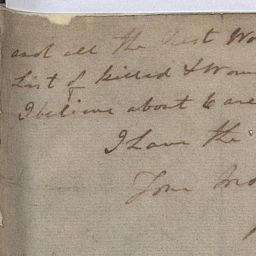 and all the Rest Wo
List of killed & Woun
I believe about 6 are
I have the